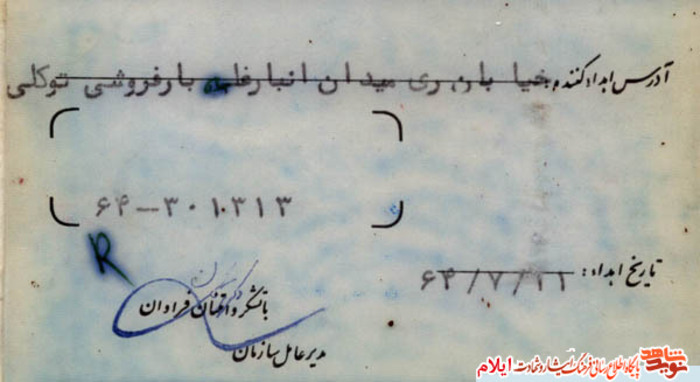 آدرس اهداء کننده خیابان ری میدان انبار غله بارفروشی توکلی
۶۴-۳۰۱۰۳۱۳
R
تاریخ اهداء: ۶۴/۷/۱۱
با تشکر و امتنان فراوان
مدیر عامل سازمان
نوید شاهد پایگاه اطلاع رسانی فرهنگ ایثار و شهادت ایلام